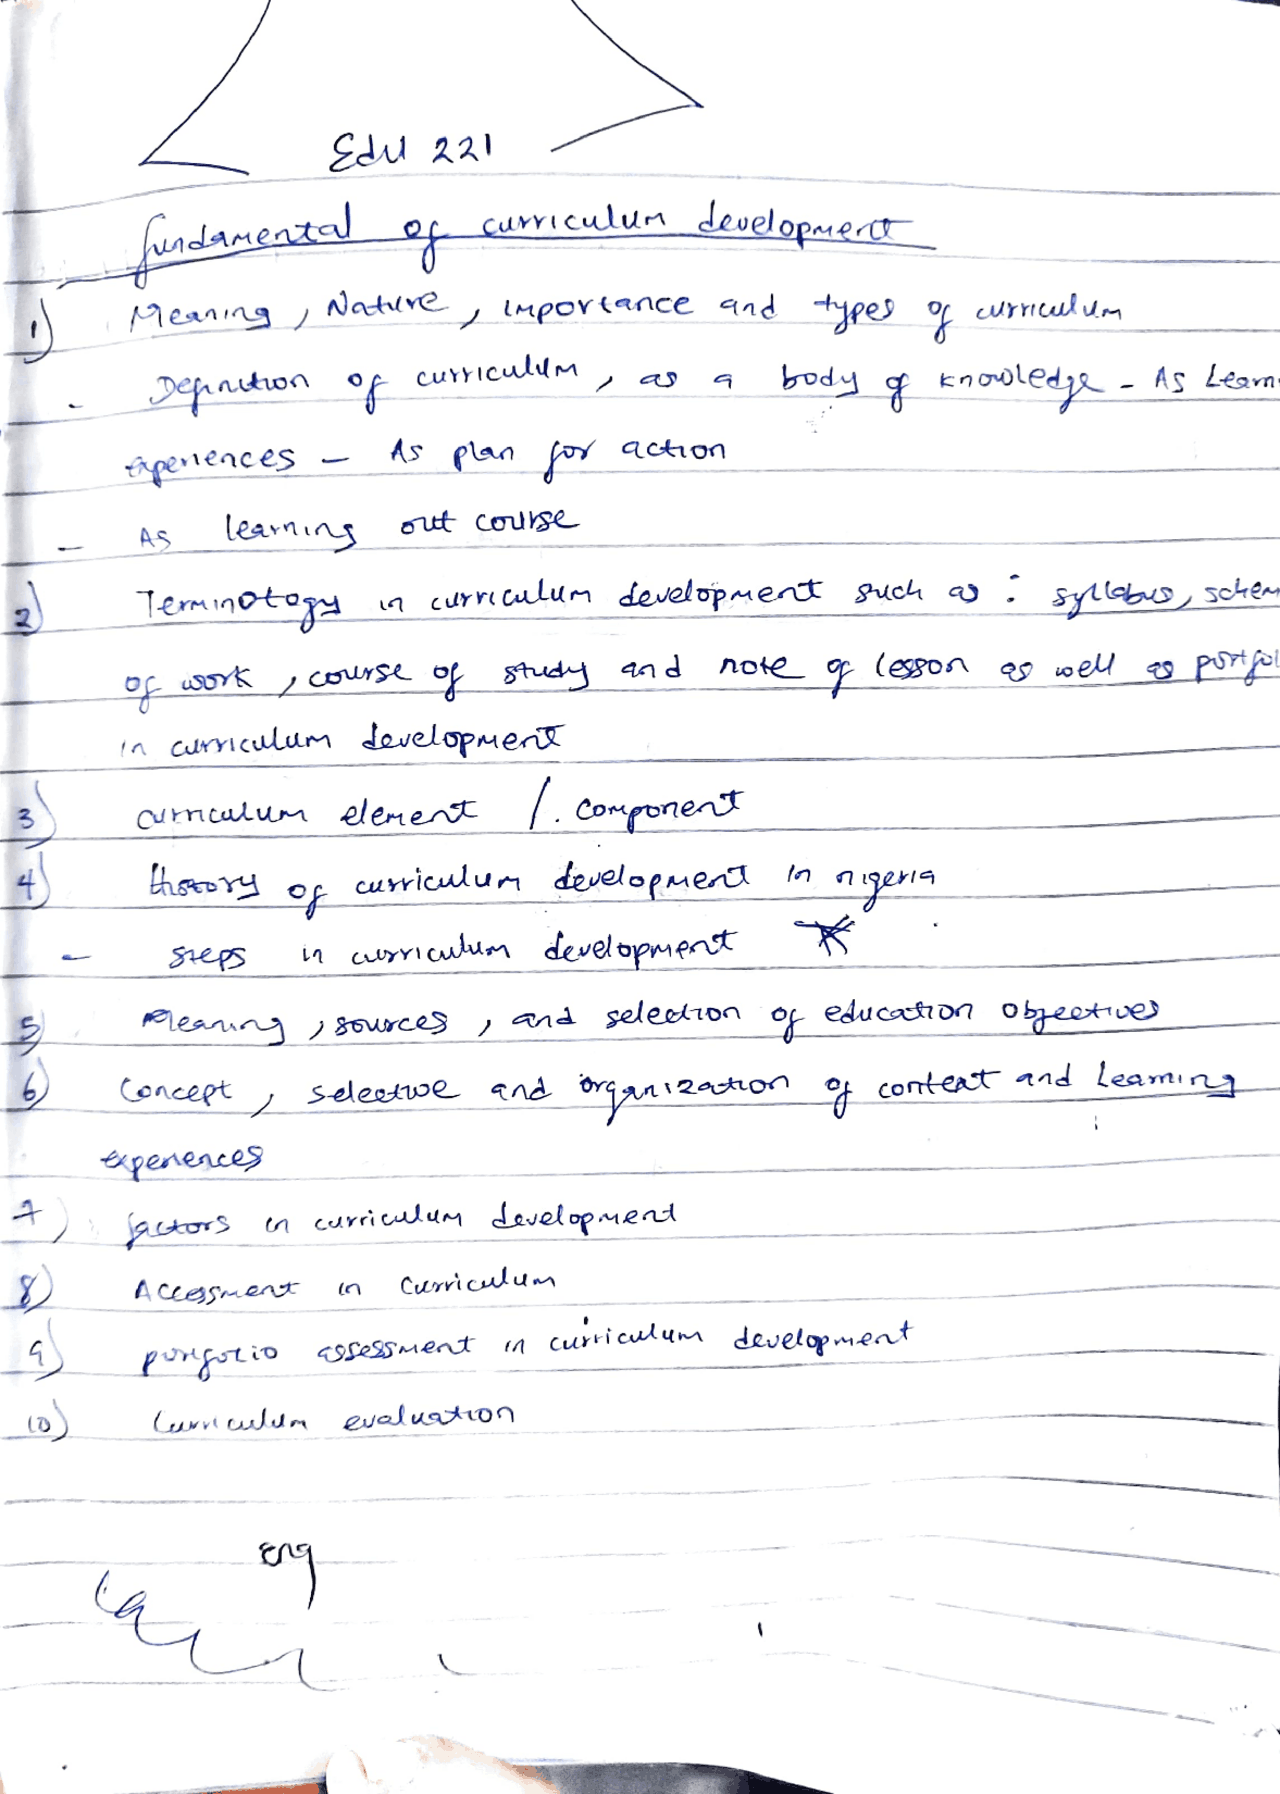 Edu 221
fundamental of curriculum development
1) Meaning, Nature, importance and types of curriculum
- Definition of curriculum, as a body of knowledge - As Learn
experiences - As plan for action
- As learning out course
2) Terminotogy in curriculum development such as : syllabus, schem
of work, course of study and note of lesson as well as portfol
in curriculum development
3) curriculum element /. component
4) history of curriculum development in nigeria
- steps in curriculum development
5) Meaning, sources, and selection of education objectives
6) Concept, selective and organization of content and learning
experiences
7) factors in curriculum development
8) Accessment in curriculum
9) portfolio assessment in curriculum development
10) Curriculum evaluation